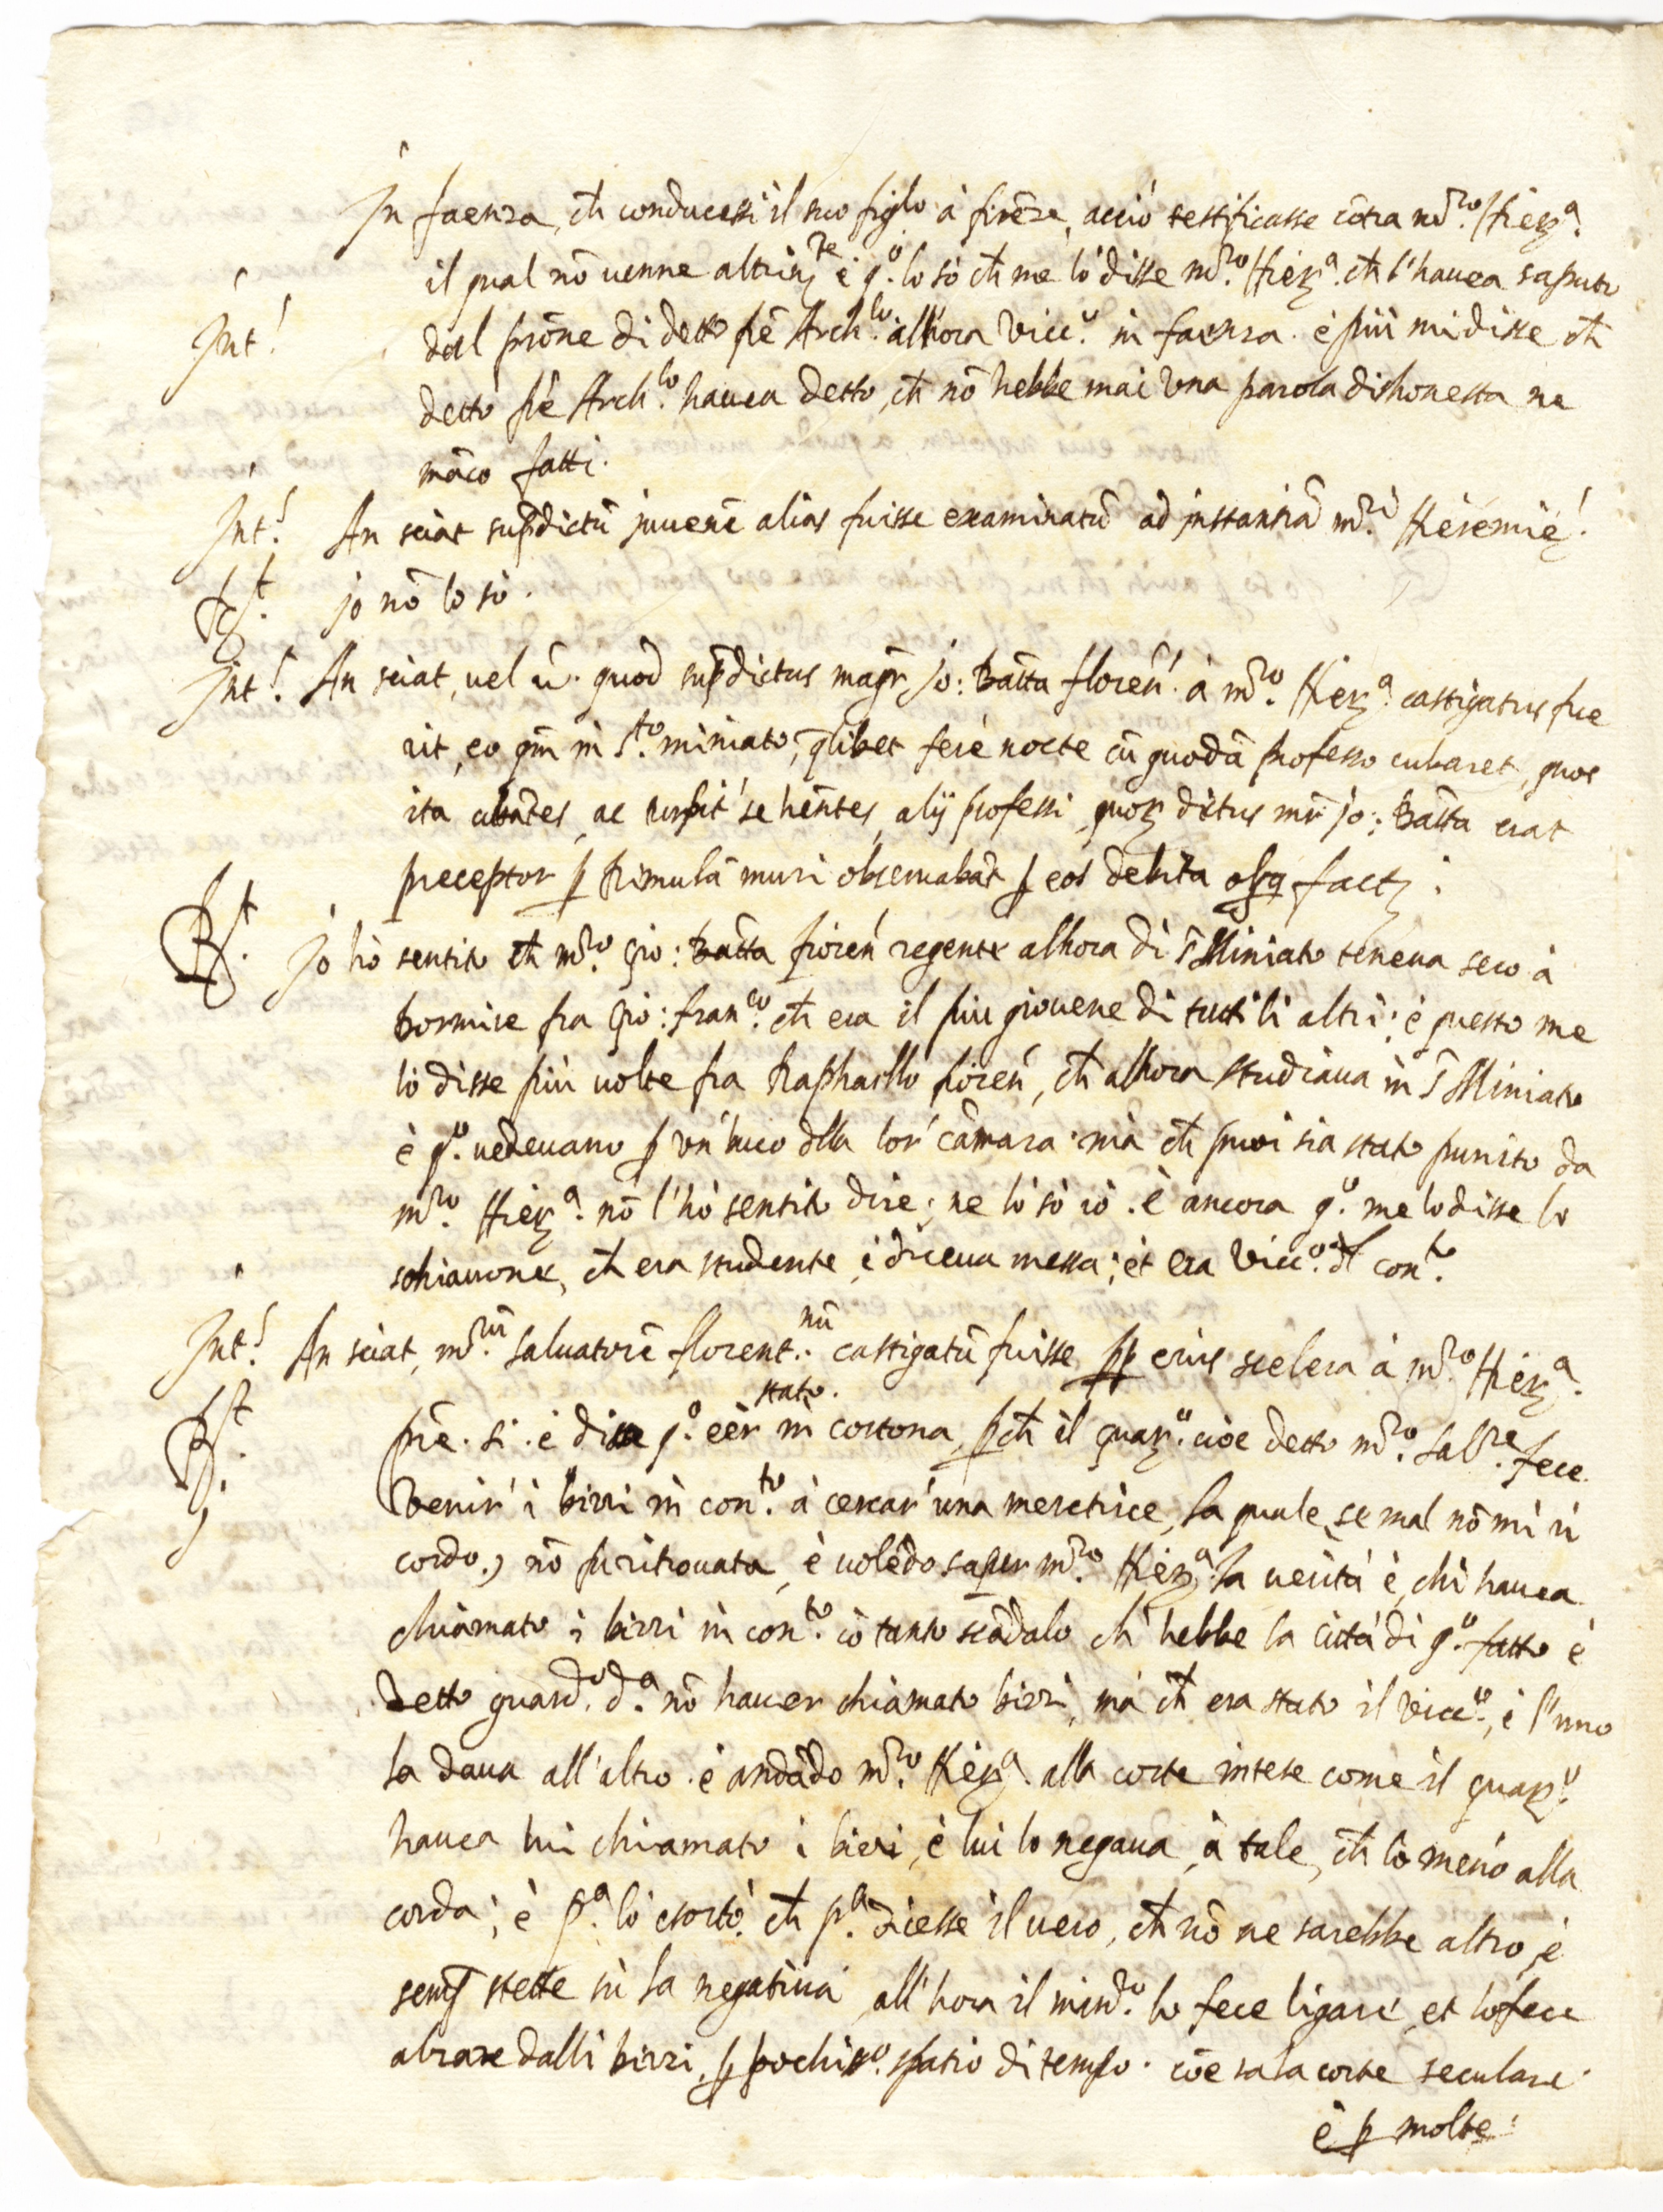 In faenza, ch̄ conducessi il suo figlo à firēze, acciò testificasse cōtra m̄.ro Hier.a
il qual nō uenne altrim.te è q.o lo sò ch̄ me lo disse m̄.ro Hier.a ch̄ l'hauea saputo
Int! dal priōne di detto pē Arch.lo alhora Vicc.o in faenza. è più mi disse ch̄
detto pē Arch.lo hauea detto, ch̄ nō hebbe mai una parola dishonesta ne
māco fatti.
Int! An sciat sup̄dictū juuenē alias fuisse examinatū ad instantiā m̄.ri Hieremie!
Rt. jo nō lo sò.
Int! An sciat, uel ū. quod sup̄dictus magr̄ Jo: Bātta floreñ. à m̄.ro Hier.a castigatus fue
rit, eo qm̄ in S.to miniato, q̄libet ferè nocte cū quodā professo cubaret, quos
ita cubātes, ac turpit' se hēntes, alij professi, quor dictus mr̄ Jo: Bātta erat
preceptor p rimulā muri obseruabāt p eos debita facta.
Rt. Jo hò sentito ch̄ m̄.ro Gio: Bātta fioreñ regente alhora di S Miniato teneua seco à
dormire fra Gio: fran.co ch̄ era il piu giouene di tutti li altri; è questo me
lo disse più uolte fra Raphaello fioreñ, ch̄ alhora studiaua in S Miniato
è q.o uedeuano p un' buco dlla lor' cāmara. mà ch̄ puoi sia stato punito da
m̄.ro Hier.a nō l'hò sentito dire; ne lo sò iò. è ancora q.o me lo disse lo
schiauone, ch̄ era studente, è diceua messa; et era Vicc.o dl con.to
Int! An sciat, m̄.rum saluatorē florent.nū castigatū fuisse pp eius scelera à m̄.ro Hier.a
Rt. prē. si. è disse q.o eēr stato in cortona, pch̄ il guar.o cioè detto m̄.ro Sal.re fece
Venir' i birri in con.to à cercar' una meretrice, la quale, se mal nō mi ri
cordo, nō fu ritrouata, è uolēdo saper m̄.ro Hier.a la uerità è, chi hauea
chiamato i birri in con.to cō tanto scādalo ch̄ hebbe la città di q.o fatto è
detto guard.o d.a nō hauer chiamato birri, mà ch̄ era stato il Vicc.o, è l'uno
la daua all'altro. è andādo m̄.ro Hier.a alla corte intese come il guar.o
hauea lui chiamato i birri, è lui lo negaua, à tale, ch̄ lo menò alla
corda; è p.a lo esortò. ch̄ p.a dicesse il uero, ch̄ nō ne sarebbe altro, è
semp stette in la negatiua, all'hora il min.ro lo fece ligare, et lo fece
alzare dalli birri, p pochis.o spatio di tempo. cōe sa la corte seculare
è p molte